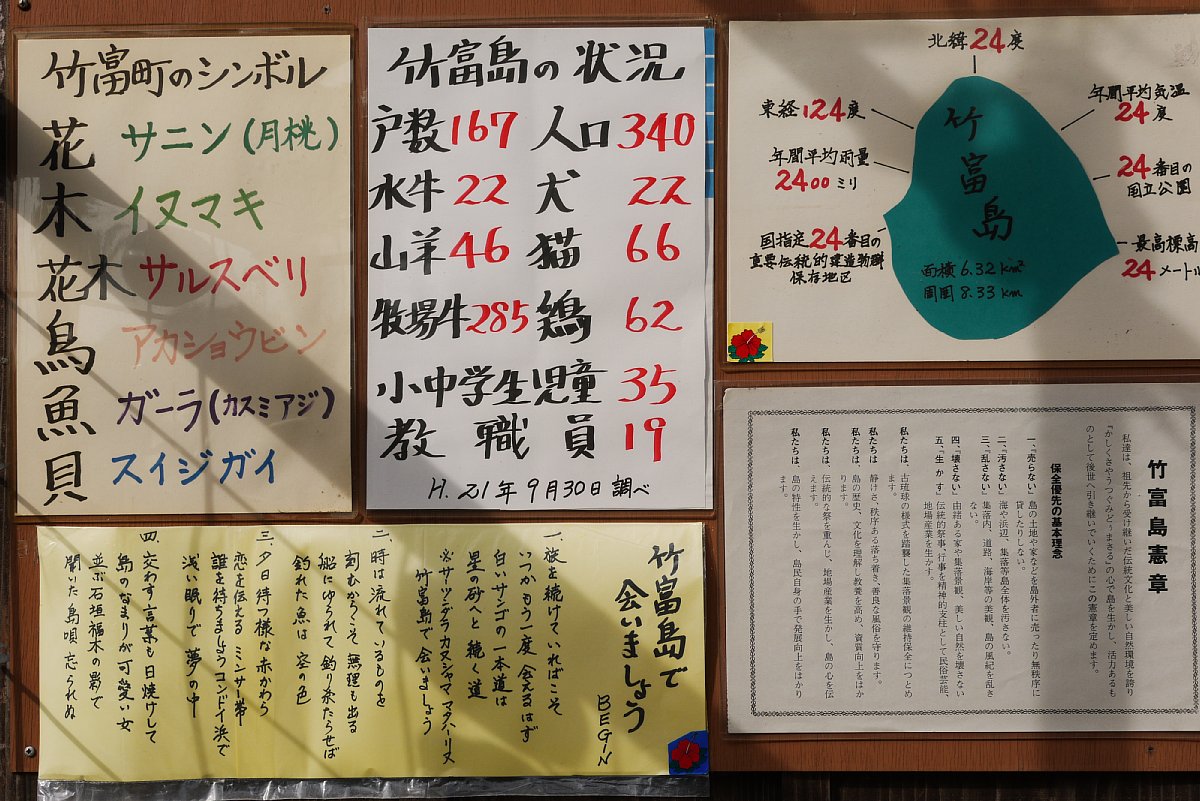 竹富町のシンボル
花 サニン(月桃)
木 イヌマキ
花木 サルスベリ
鳥 アカショウビン
魚 ガーラ(カスミアジ)
貝 スイジガイ
竹富島の状況
戸数 167 人口 340
水牛 22 犬 22
山羊 46 猫 66
牧場牛 285 鶏 62
小中学生児童 35
教職員 19
H.21年9月30日 調べ
北緯24度
東経124度
年間平均気温
24度
年間平均雨量
2400ミリ
24番目の
国立公園
国指定24番目の
重要伝統的建造物群
保存地区
最高標高
24メートル
竹富島
面積 6.32km²
周囲 8.33km
竹富島で
会いましょう
BEGIN
一.旅を続けていればこそ
いつかもう一度 会えるはず
白いサンゴの一本道は
星の砂へと続く道
※サーサンデラカヌシャマ マタハーリヌ
竹富島で会いましょう
二.時は流れているものを
刻むからこそ無理も出る
船にゆられて釣り糸たらせば
釣れた魚は空の色
三.夕日待つ様な赤かわら
恋を伝えるミンサー帯
誰を待ちましょうコンドイ浜で
浅い眠りで夢の中
四.交わす言葉も日焼けして
島のなまりが可愛い女
並ぶ石垣福木の影で
聞いた島唄忘られぬ
竹富島憲章
私達は、祖先から受け継いだ伝統文化と美しい自然環境を誇り
『かしくさやうつぐみどぅまさる』の心で島を生かし、活力あるも
のとして後世へ引き継いでいくためにこの憲章を定めます。
保全優先の基本理念
一、『売らない』 島の土地や家などを島外者に売ったり無秩序に
貸したりしない。
二、『汚さない』 海や浜辺、集落等島全体を汚さない。
三、『乱さない』 集落内、道路、海岸等の美観、島の風紀を乱さ
ない。
四、『壊さない』 由緒ある家や集落景観、美しい自然を壊さない
五、『生かす』 伝統的祭事、行事を精神的支柱として民俗芸能、
地場産業を生かす。
私たちは、古琉球の様式を踏襲した集落景観の維持保全につとめ
ます。
私たちは 静けさ、秩序ある落ち着き、善良な風俗を守ります。
私たちは 島の歴史、文化を理解し教養を高め、資質向上をはか
ります。
私たちは、伝統的な祭を重んじ、地場産業を生かし、島の心を伝
えます。
私たちは、島の特性を生かし、島民自身の手で発展向上をはかり
ます。